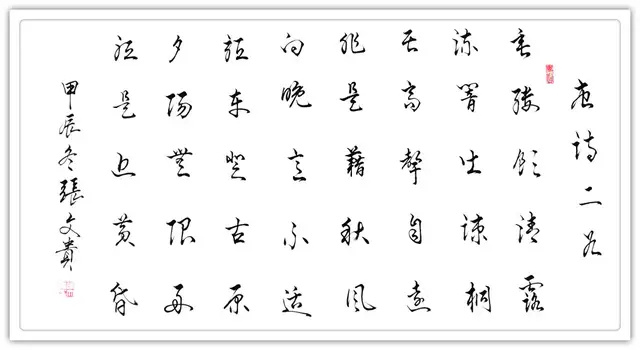 唐诗二首
垂緌饮清露
流響出疎桐
居高聲自遠
非是藉秋風
向晚意不适
驱车登古原
夕陽無限好
祇是近黄昏
甲辰冬張文貴